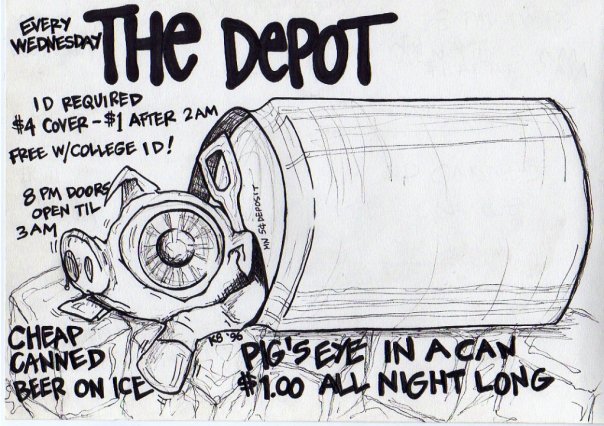 EVERY
WEDNESDAY
THE DEPOT
ID REQUIRED
$4 COVER - $1 AFTER 2AM
FREE W/COLLEGE ID!
8 PM DOORS
OPEN TIL
3 AM
5¢ DEPOSIT
KB '96
CHEAP
CANNED
BEER ON ICE
PIG'S EYE IN A CAN
$1.00 ALL NIGHT LONG